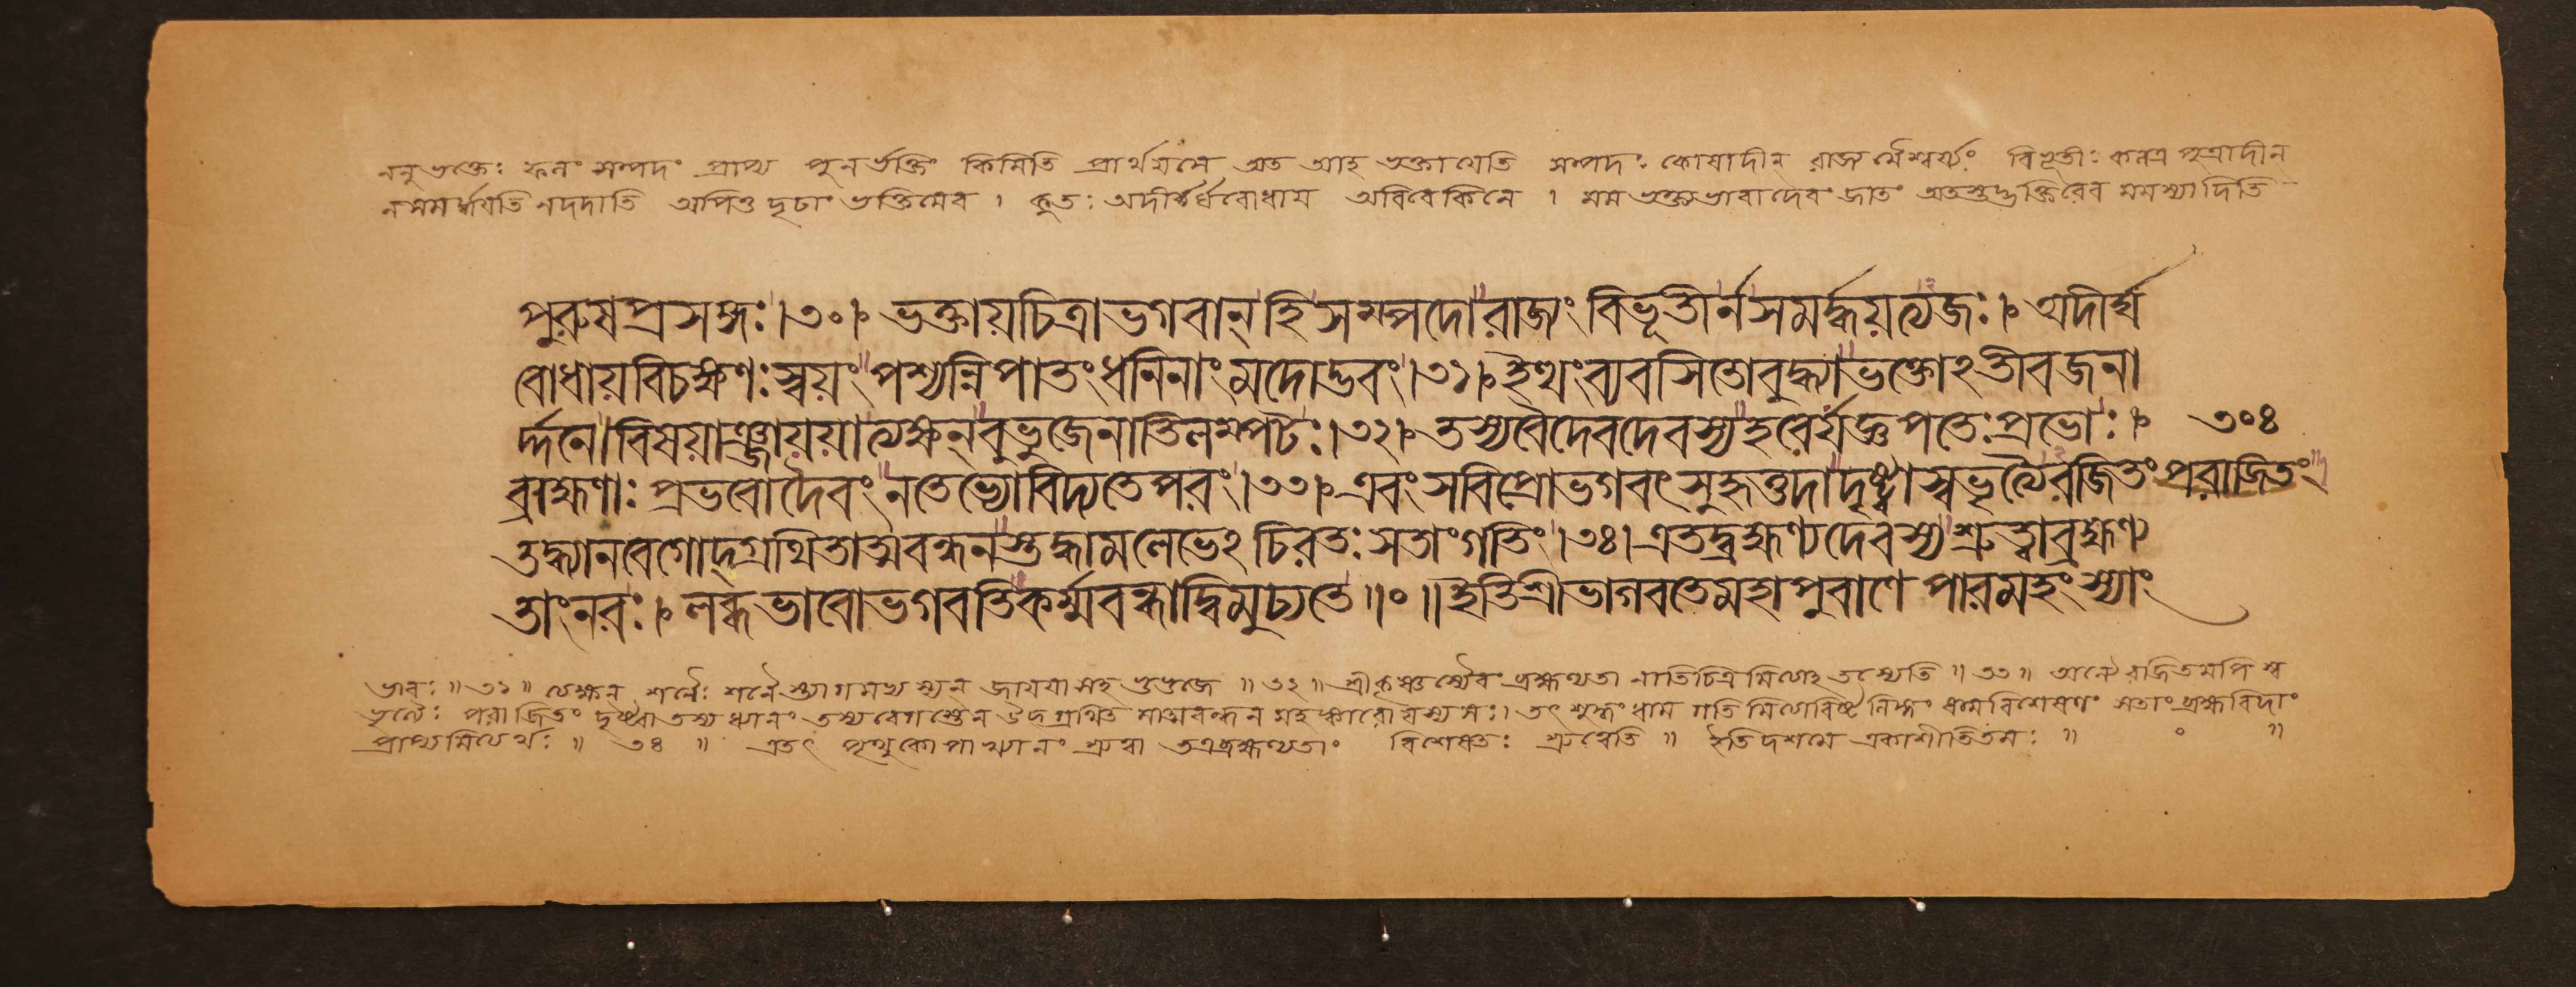 ননু ভক্তেঃ ফলং সম্পদং প্রাপ্য পুনর্ভক্তিং কিমিতি প্রার্থয়তে অত আহ ভক্তায়েতি সম্পদঃ কোষাদীন্ রাজ্যমৈশ্বর্য্যং বিভূতীঃ কলত্র পুত্রাদীন্
ন সমর্দ্ধয়তি নদদাতি অপিতু দৃঢাং ভক্তিমেব । কুতঃ অদীর্ঘবোধায় অবিবেকিনে । মম ভক্ত্যভাবাদেবং জাতং অতস্তদ্ভক্তিরেব মমস্যাদিতি
পুরুষপ্রসঙ্গঃ।৩০। ভক্তায়চিত্রাভগবান্ হিসম্পদোরাজ্যং বিভূতীর্নসমর্দ্ধয়ত্যজঃ। অদীর্ঘ
বোধায়বিচক্ষণঃস্বয়ং পশ্যন্নিপাতংধনিনাংমদোদ্ভবং।৩১।ইত্থংব্যবসিতোবুদ্ধ্যাভক্তোঽতীবজনা
র্দ্দনে।বিষয়াঞ্জায়য়াত্যক্ষন্ বুভুজেনাতিলম্পটঃ।৩২। তস্যবৈদেবদেবস্যহরের্যজ্ঞপতেঃপ্রভোঃ। ৩০৪
ব্রাহ্মণাঃ প্রভবোদৈবং নতেভ্যোবিদ্যতেপরং।৩৩।এবং সবিপ্রোভগবৎসুহৃত্তদাদৃষ্ট্বাস্বভৃত্যৈরজিতংপরাজিতং
তদ্ধ্যানবেগোদ্গ্রথিতাত্মবন্ধনস্তদ্ধামলেভেঽচিরতঃ সতাংগতিং।৩৪।এতদ্ব্রহ্মণ্যদেবস্যশ্রুত্বাব্রহ্মণ্য
তাংনরঃ। লব্ধভাবোভগবতিকর্ম্মবন্ধাদ্বিমুচ্যতে॥০॥ইতিশ্রীভাগবতেমহাপুরাণে পারমহংস্যাং
ভাবঃ॥৩১॥ত্যক্ষন্ শনৈঃ শনৈস্ত্যাগমভ্যস্যন্ জায়য়াসহ বুভুজে॥৩২॥শ্রীকৃষ্ণস্যৈবং ব্রহ্মণ্যতা নাতিচিত্রমিত্যাহ তস্যেতি॥৩৩॥ অন্যৈরজিতমপি স্ব
ভৃত্যৈঃ পরাজিতং দৃষ্ট্বা তস্য ধ্যানং তস্য বেগস্তেন উদ্গ্রথিত মাত্মবন্ধন মহঙ্কারো যস্য সঃ। তৎ ধাম সতাং ব্রহ্মবিদাং
প্রাপ্যমিত্যর্থঃ॥ ৩৪ ॥ এতৎ পৃথুকোপাখ্যানং শ্রুত্বা তত্রব্রহ্মণ্যতাং বিশেষতঃ শ্রুত্বেতি॥ ইতিদশমে একাশীতিতমঃ॥ ০ ॥